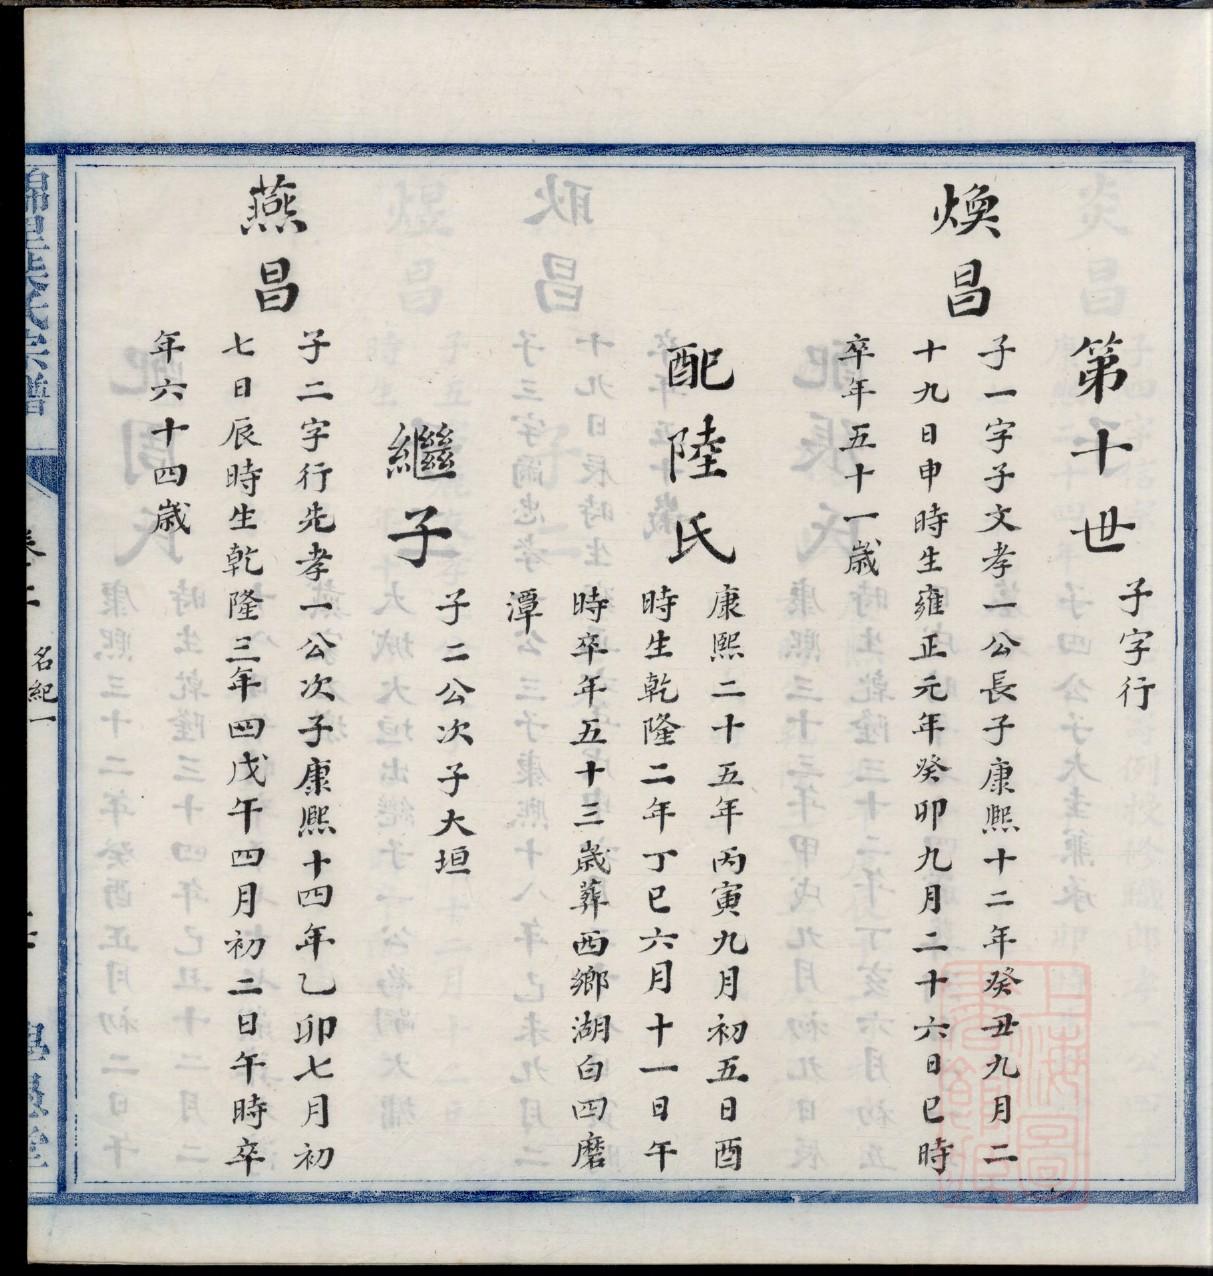 第十世
子字行
煥昌
子一字子文孝一公長子康熙十二年癸丑九月二
十九日申時生雍正元年癸卯九月二十六日巳時
卒年五十一歲
配陸氏
康熙二十五年丙寅九月初五日酉
時生乾隆二年丁巳六月十一日午
時卒年五十三歲葬西鄉湖白四磨
潭
繼子
子二公次子大垣
燕昌
子二字行先孝一公次子康熙十四年乙卯七月初
七日辰時生乾隆三年四戊午四月初二日午時卒
年六十四歲
名紀一